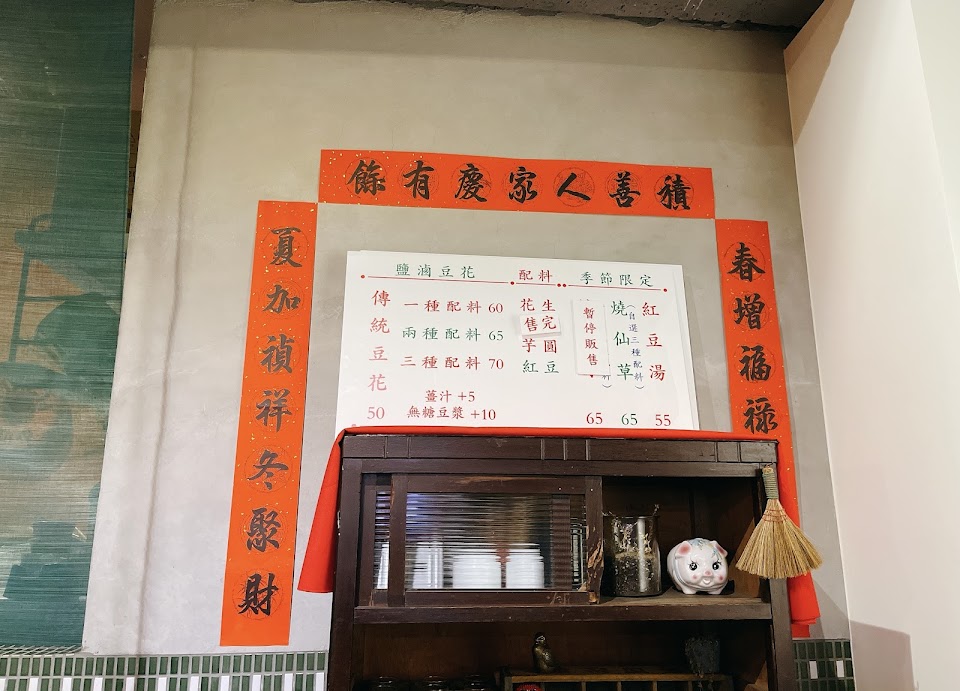 積善人家慶有餘
春增福祿
夏加禎祥冬聚財
鹽滷豆花
傳統豆花
50
一種配料 60
兩種配料 65
三種配料 70
薑汁 +5
無糖豆漿 +10
配料
花生
售完
芋圓
紅豆
季節限定
紅豆湯
55
燒仙草
(自選三種配料)
65
暫停販售
料)
65